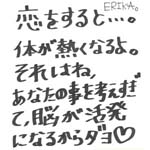 ERIKA。
恋をすると…。
体が熱くなるよ。
それはね、
あなたの事を考えすぎ
て、脳が活発
になるからダヨ♡